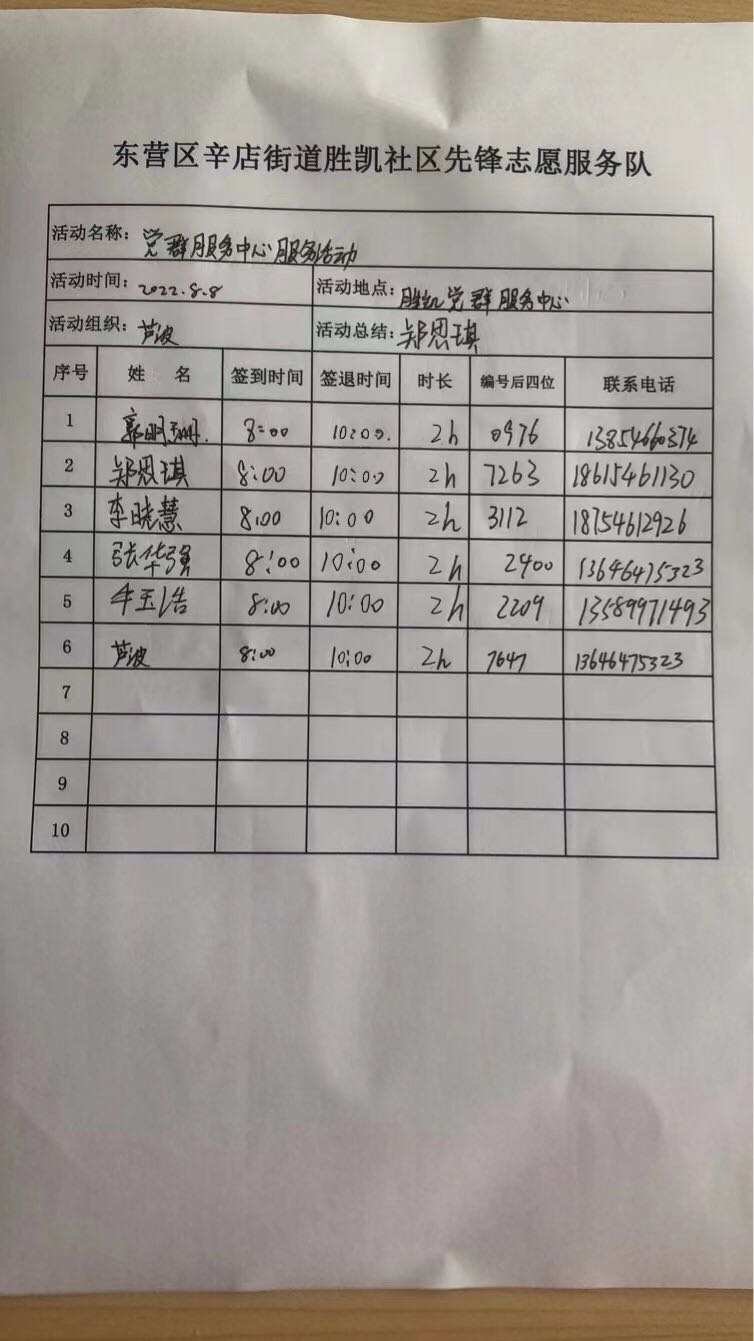 东营区辛店街道胜凯社区先锋志愿服务队
活动名称：党群服务中心服务活动
活动时间：2022.8.8 活动地点：胜凯党群服务中心
活动组织：芦波 活动总结：郑恩琪
序号 姓 名 签到时间 签退时间 时长 编号后四位 联系电话
1 郭明珊. 8:00 10:00. 2h 0976 13854660374
2 郑恩琪 8:00 10:00 2h 7263 18615461130
3 李晓慧 8:00 10:00 2h 3112 18754612926
4 张华强 8:00 10:00 2h 2400 13646475323
5 牛玉浩 8:00 10:00 2h 2209 13589971493
6 芦波 8:00 10:00 2h 7647 13646475323
7
8
9
10